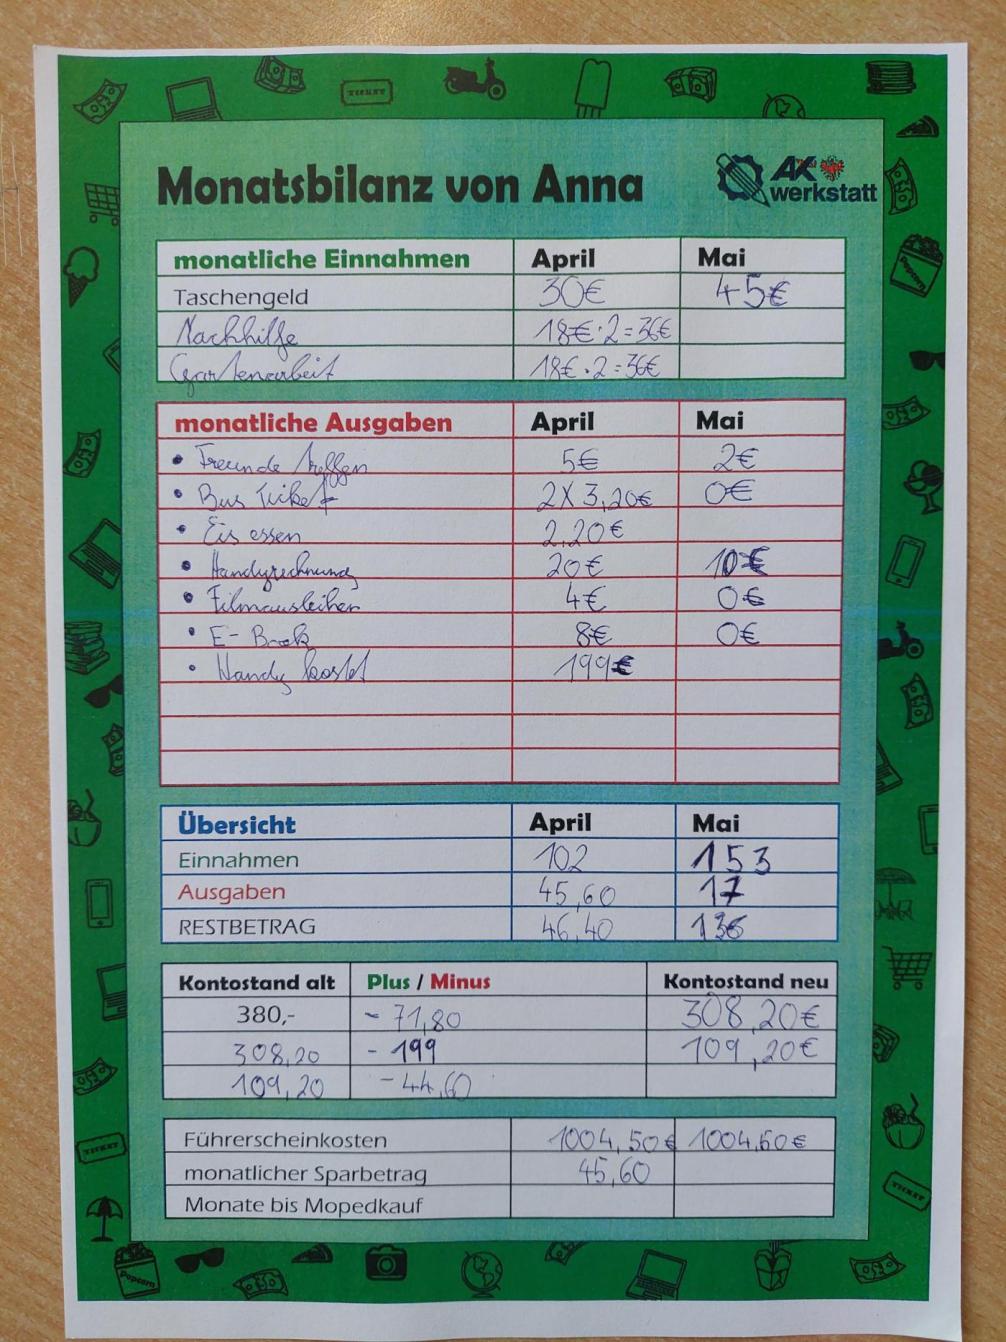 Monatsbilanz von Anna
AK werkstatt
monatliche Einnahmen April Mai
Taschengeld 30€ 45€
Nachhilfe 18€·2=36€
Gartenarbeit 18€·2=36€
monatliche Ausgaben April Mai
• Freunde treffen 5€ 2€
• Bus Ticket 2X3,20€ 0€
• Eis essen 2,20€
• Handyrechnung 20€ 10€
• Filmausleihen 4€ 0€
• E-Book 8€ 0€
• Handy kostet 199€
Übersicht April Mai
Einnahmen 102 153
Ausgaben 45,60 17
RESTBETRAG 46,40 136
Kontostand alt Plus / Minus Kontostand neu
380,- - 71,80 308,20€
308,20 - 199 109,20€
109,20 - 44,60
Führerscheinkosten 1004,50€ 1004,60€
monatlicher Sparbetrag 45,60
Monate bis Mopedkauf
TICKET
Popcorn
TICKET
TICKET
Popcorn